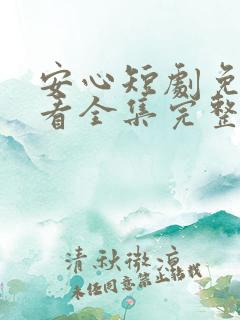 安心短劇免
看全集完整
清秋微涼
未经同意禁止转载